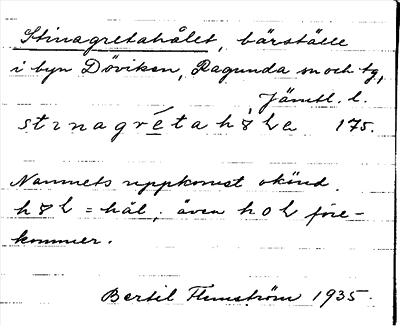 Stinagretahålet, bärställe
i byn Döviken, Ragunda sn och tg,
Jämtl. l.
stɪnagréta hȣ́lɐ 175.
Namnets uppkomst okänd.
hȣɬ = hål; även hoɬ före-
kommer.
Bertil Flemström 1935.